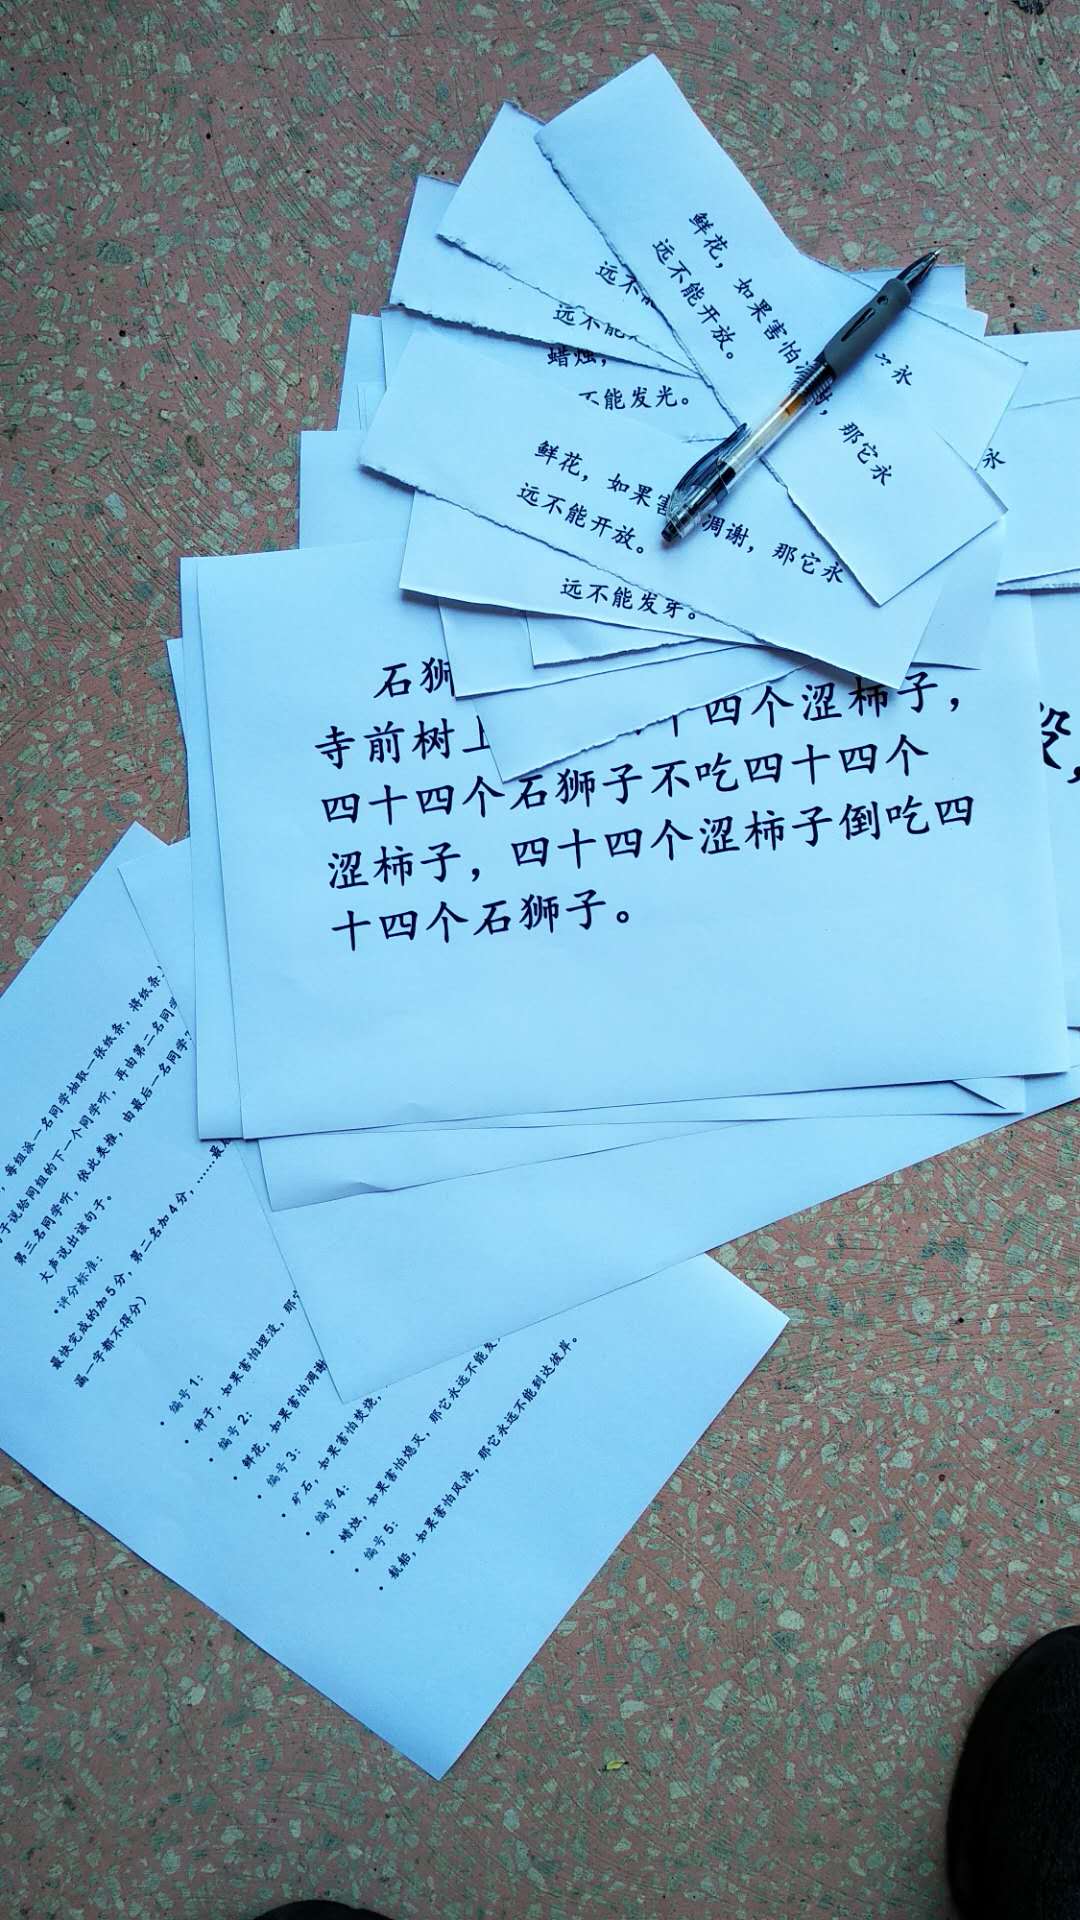 鲜花，如果害怕凋谢，那它永
远不能开放。
远不
永
远不能
蜡烛，
不能发光。
鲜花，如果害 凋谢，那它永
远不能开放。
远不能发芽。
石狮
寺前树上 十四个涩柿子，
四十四个石狮子不吃四十四个
涩柿子，四十四个涩柿子倒吃四
十四个石狮子。
，每组派一名同学抽取一张纸条，将纸条
子说给同组的下一个同学听，再由第二名同学
第三名同学听，依此类推，由最后一名同学
大声说出该句子。
•评分标准：
最快完成的加5分，第二名加4分，……最
漏一字都不得分）
• 编号1：
• 种子，如果害怕埋没，那
• 编号2：
• 鲜花，如果害怕凋谢
• 编号3：
• 矿石，如果害怕焚烧，
• 编号4：
• 蜡烛，如果害怕熄灭，那它永远不能发
• 编号5：
• 航船，如果害怕风浪，那它永远不能到达彼岸。